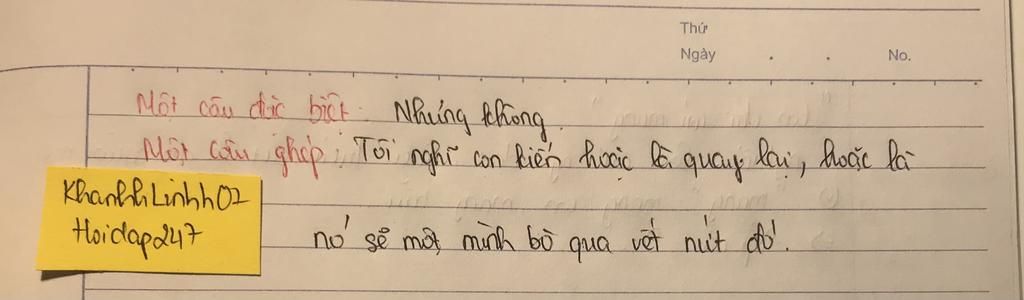 Thứ
Ngày . . No.
Một câu đặc biệt: Nhưng không.
Một câu ghép: Tôi nghĩ con kiến hoặc là quay lại, hoặc là
nó sẽ một mình bò qua vết nứt đó.
KhanhhLinhh02
Hoidap247